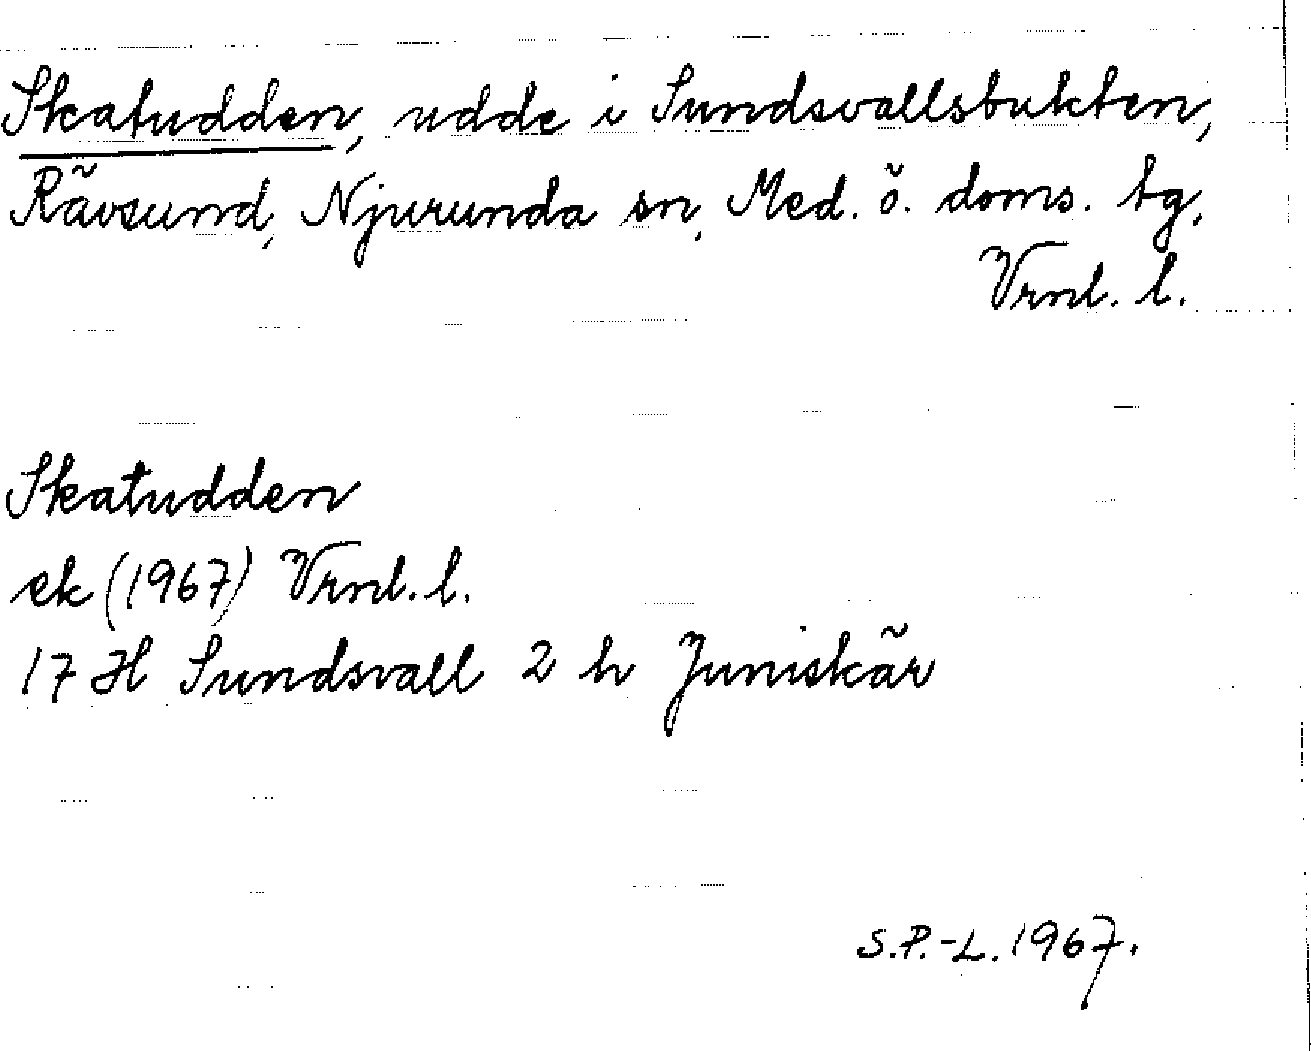 Skatudden, udde i Sundsvallsbukten,
Rävsund, Njurunda sn, Med. ö. doms. tg,
Vrnl. l.
Skatudden
ek (1967) Vrnl. l.
17 H Sundsvall 2 h Juniskär
S.P.-L. 1967.